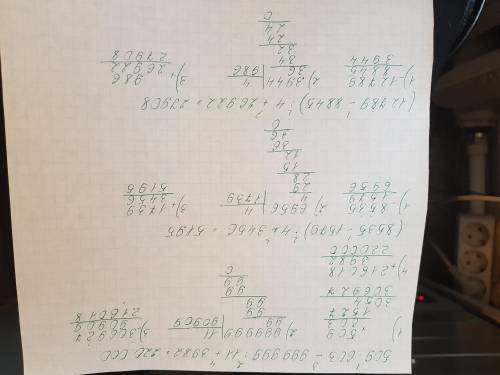 509·603 - 999999 : 11 + 3982 = 220000
1) × 509
603
1527
3054
306927
2) 999999 | 11
99 | 90909
99
99
99
99
0
3) - 306927
90909
216018
4) + 216018
3982
220000
(8535 - 1579) : 4 + 3456 = 5195
1) - 8535
1579
6956
2) 6956 | 4
4 | 1739
29
28
15
12
36
36
0
3) + 1739
3456
5195
(12789 - 8845) : 4 + 26922 = 27908
1) - 12789
8845
3944
2) 3944 | 4
36 | 986
34
32
24
24
0
3) + 986
26922
27908